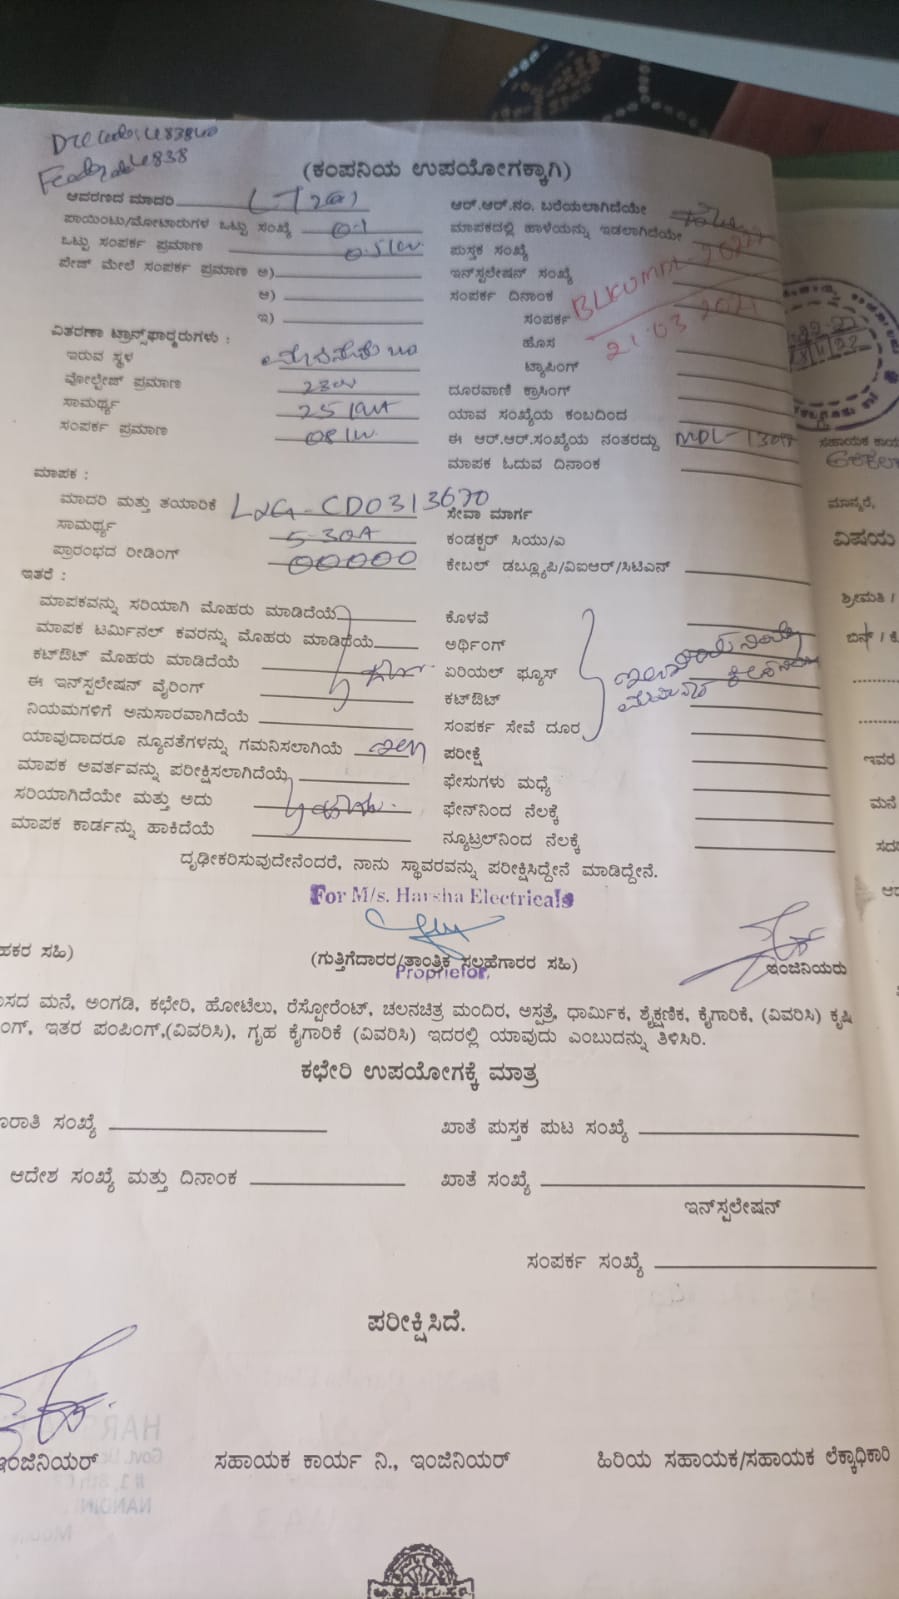 (ಕಂಪನಿಯ ಉಪಯೋಗಕ್ಕಾಗಿ)
ಆವರಣದ ಮಾದರಿ
ಆರ್.ಆರ್.ನಂ. ಬರೆಯಲಾಗಿದೆಯೇ
ಪಾಯಿಂಟು/ಮೋಟಾರುಗಳ ಒಟ್ಟು ಸಂಖ್ಯೆ 0-1
ಮಾಪಕದಲ್ಲಿ ಹಾಳೆಯನ್ನು ಇಡಲಾಗಿದೆಯೇ
ಒಟ್ಟು ಸಂಪರ್ಕ ಪ್ರಮಾಣ
ಪುಸ್ತಕ ಸಂಖ್ಯೆ
ಪೇಜ್ ಮೇಲೆ ಸಂಪರ್ಕ ಪ್ರಮಾಣ ಅ)
ಇನ್‌ಸ್ಟಲೇಷನ್ ಸಂಖ್ಯೆ
ಆ)
ಸಂಪರ್ಕ ದಿನಾಂಕ
ಇ)
ಸಂಪರ್ಕ
21-03
ವಿತರಣಾ ಟ್ರಾನ್ಸ್‌ಫಾರ್ಮರುಗಳು :
ಹೊಸ
ಇರುವ ಸ್ಥಳ
ಟ್ಯಾಪಿಂಗ್
ವೋಲ್ಟೇಜ್ ಪ್ರಮಾಣ
ದೂರವಾಣಿ ಕ್ರಾಸಿಂಗ್
ಸಾಮರ್ಥ್ಯ 25
ಯಾವ ಸಂಖ್ಯೆಯ ಕಂಬದಿಂದ
ಸಂಪರ್ಕ ಪ್ರಮಾಣ
ಈ ಆರ್.ಆರ್.ಸಂಖ್ಯೆಯ ನಂತರದ್ದು
ಮಾಪಕ ಓದುವ ದಿನಾಂಕ
ಮಾಪಕ :
ಮಾದರಿ ಮತ್ತು ತಯಾರಿಕೆ L&G-CD0313670
ಸೇವಾ ಮಾರ್ಗ
ಸಾಮರ್ಥ್ಯ 5-30A
ಕಂಡಕ್ಟರ್ ಸಿಯು/ಎ
ಪ್ರಾರಂಭದ ರೀಡಿಂಗ್ 00000
ಕೇಬಲ್ ಡಬ್ಲ್ಯೂಪಿ/ವಿಐಆರ್/ಸಿಟಿಎಸ್
ಇತರೆ :
ಮಾಪಕವನ್ನು ಸರಿಯಾಗಿ ಮೊಹರು ಮಾಡಿದೆಯೆ
ಕೊಳವೆ
ಮಾಪಕ ಟರ್ಮಿನಲ್ ಕವರನ್ನು ಮೊಹರು ಮಾಡಿದೆಯೆ
ಅರ್ಥಿಂಗ್
ಕಟ್‌ಔಟ್ ಮೊಹರು ಮಾಡಿದೆಯೆ
ಏರಿಯಲ್ ಫ್ಯೂಸ್
ಈ ಇನ್‌ಸ್ಟಲೇಷನ್ ವೈರಿಂಗ್
ಕಟ್‌ಔಟ್
ನಿಯಮಗಳಿಗೆ ಅನುಸಾರವಾಗಿದೆಯೆ
ಸಂಪರ್ಕ ಸೇವೆ ದೂರ
ಯಾವುದಾದರೂ ನ್ಯೂನತೆಗಳನ್ನು ಗಮನಿಸಲಾಗಿಯೆ
ಪರೀಕ್ಷೆ
ಮಾಪಕ ಅವರ್ತವನ್ನು ಪರೀಕ್ಷಿಸಲಾಗಿದೆಯೆ
ಫೇಸುಗಳು ಮಧ್ಯೆ
ಸರಿಯಾಗಿದೆಯೇ ಮತ್ತು ಅದು
ಫೇಸ್‌ನಿಂದ ನೆಲಕ್ಕೆ
ಮಾಪಕ ಕಾರ್ಡನ್ನು ಹಾಕಿದೆಯೆ
ನ್ಯೂಟ್ರಲ್‌ನಿಂದ ನೆಲಕ್ಕೆ
ದೃಢೀಕರಿಸುವುದೇನೆಂದರೆ, ನಾನು ಸ್ಥಾವರವನ್ನು ಪರೀಕ್ಷಿಸಿದ್ದೇನೆ ಮಾಡಿದ್ದೇನೆ.
For M/s. Harsha Electricals
ಹಕರ ಸಹಿ)
(ಗುತ್ತಿಗೆದಾರರ/ತಾಂತ್ರಿಕ ಸಲ್ಲಹೆಗಾರರ ಸಹಿ)
ಇಂಜಿನಿಯರು
Proprietor.
ಸದ ಮನೆ, ಅಂಗಡಿ, ಕಛೇರಿ, ಹೋಟೆಲು, ರೆಸ್ಟೋರೆಂಟ್, ಚಲನಚಿತ್ರ ಮಂದಿರ, ಅಸ್ಪತ್ರೆ, ಧಾರ್ಮಿಕ, ಶೈಕ್ಷಣಿಕ, ಕೈಗಾರಿಕೆ, (ವಿವರಿಸಿ) ಕೃಷಿ
ಂಗ್, ಇತರ ಪಂಪಿಂಗ್,(ವಿವರಿಸಿ), ಗೃಹ ಕೈಗಾರಿಕೆ (ವಿವರಿಸಿ) ಇದರಲ್ಲಿ ಯಾವುದು ಎಂಬುದನ್ನು ತಿಳಿಸಿರಿ.
ಕಛೇರಿ ಉಪಯೋಗಕ್ಕೆ ಮಾತ್ರ
ರಾತಿ ಸಂಖ್ಯೆ
ಖಾತೆ ಪುಸ್ತಕ ಪುಟ ಸಂಖ್ಯೆ
ಆದೇಶ ಸಂಖ್ಯೆ ಮತ್ತು ದಿನಾಂಕ
ಖಾತೆ ಸಂಖ್ಯೆ
ಇನ್‌ಸ್ಟಲೇಷನ್
ಸಂಪರ್ಕ ಸಂಖ್ಯೆ
ಪರೀಕ್ಷಿಸಿದೆ.
ಇಂಜಿನಿಯರ್
ಸಹಾಯಕ ಕಾರ್ಯ ನಿ., ಇಂಜಿನಿಯರ್
ಹಿರಿಯ ಸಹಾಯಕ/ಸಹಾಯಕ ಲೆಕ್ಕಾಧಿಕಾರಿ
ಸಹಾಯಕ ಕಾರ್ಯ
ಮಾನ್ಯರೆ,
ವಿಷಯ
ಶ್ರೀಮತಿ /
ಬಿನ್ / ಕೆ
ಇವರ
ಮನೆ
ಸದರಿ